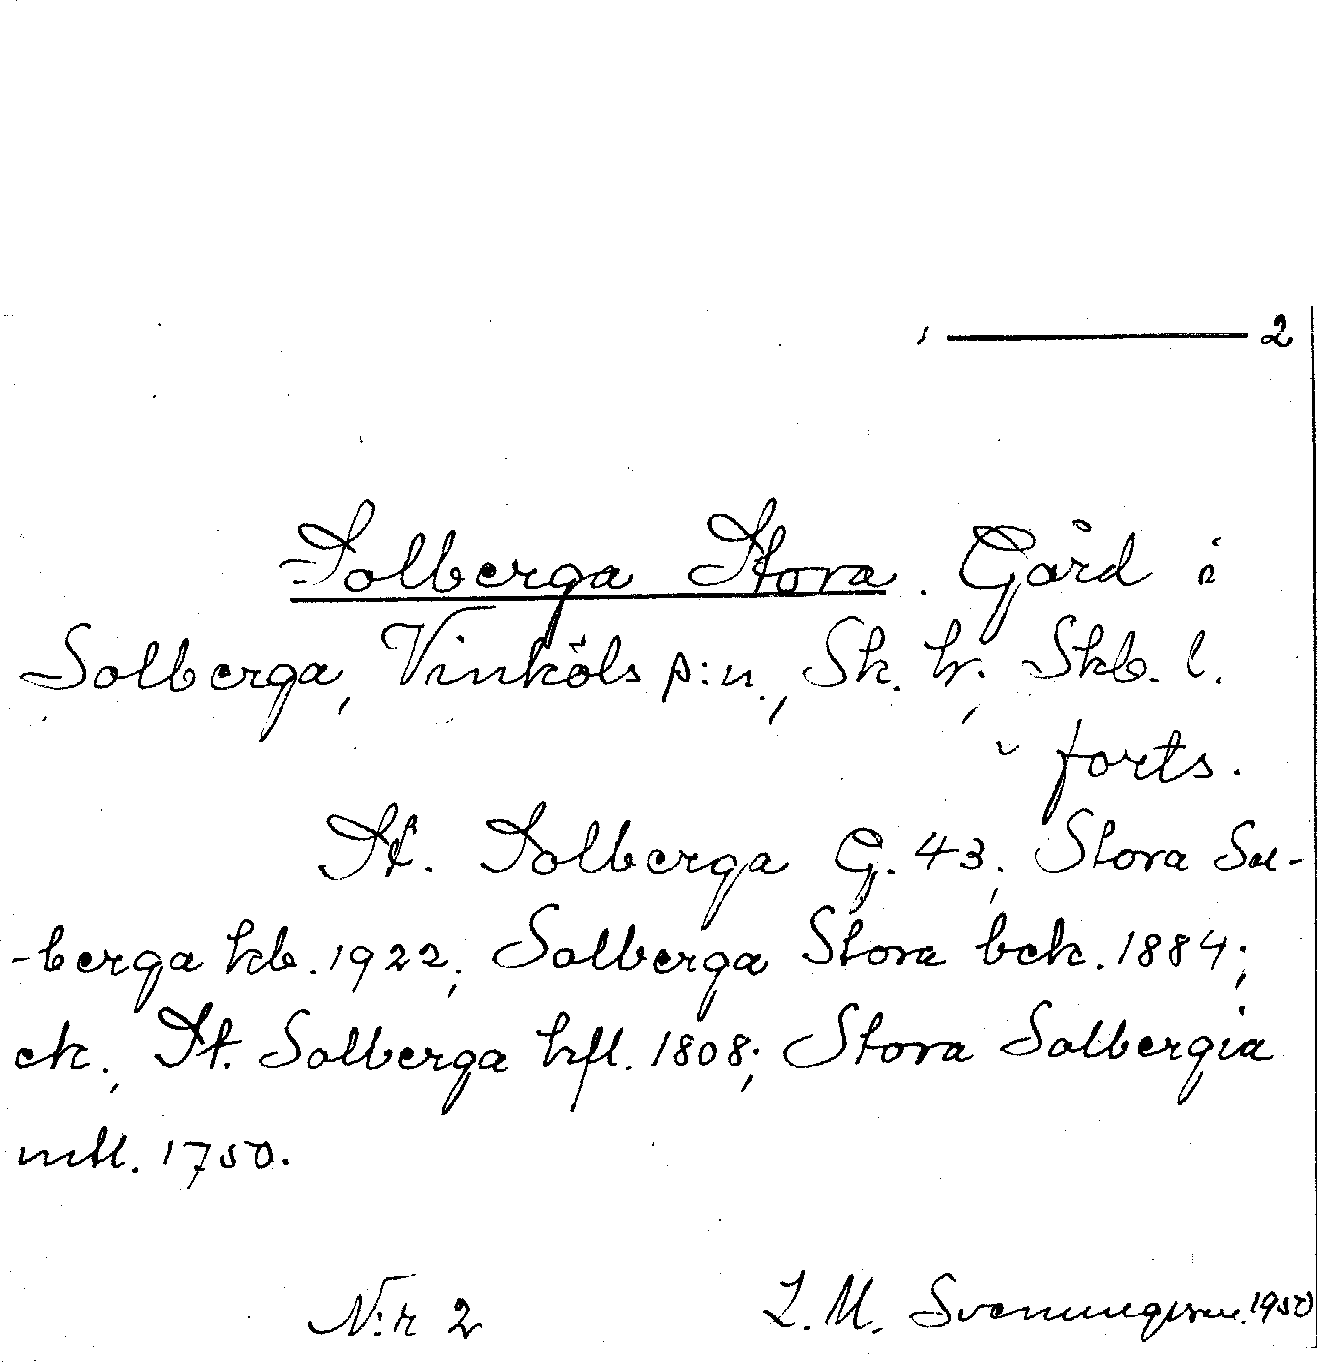 2
Solberga Stora. Gård i
Solberga, Vinköls s:n., Sk. hr. Skb. l.
forts.
St. Solberga G. 43; Stora Sol-
-berga kb. 1922; Solberga Stora bek. 1884;
ek., St. Solberga hfl. 1808; Stora Solbergia
mtl. 1750.
N:r 2
L. M. Svenungsson. 1950